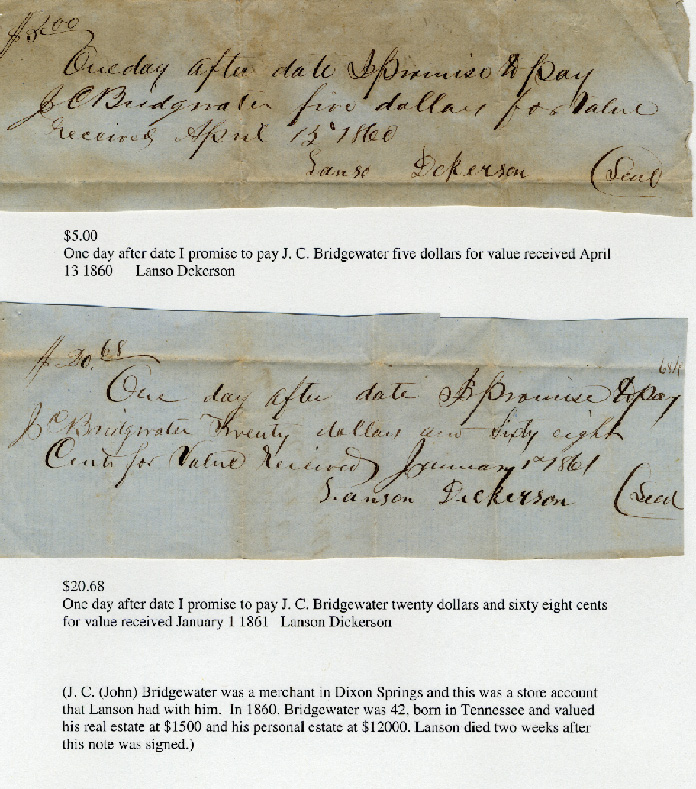 $5.00
One day after date I promise to pay
J C Bridgwater five dollars for Value
received April 13 1860
Lanso Dckerson (Seal
$20.68
One day after date I promise to pay
J C Bridgwater Twenty dollars and sixty eight
Cents for Value Received January 1st 1861
Lanson Dickerson (Seal
$5.00
One day after date I promise to pay J. C. Bridgewater five dollars for value received April
13 1860 Lanso Dckerson
$20.68
One day after date I promise to pay J. C. Bridgewater twenty dollars and sixty eight cents
for value received January 1 1861 Lanson Dickerson
(J. C. (John) Bridgewater was a merchant in Dixon Springs and this was a store account
that Lanson had with him. In 1860, Bridgewater was 42, born in Tennessee and valued
his real estate at $1500 and his personal estate at $12000. Lanson died two weeks after
this note was signed.)